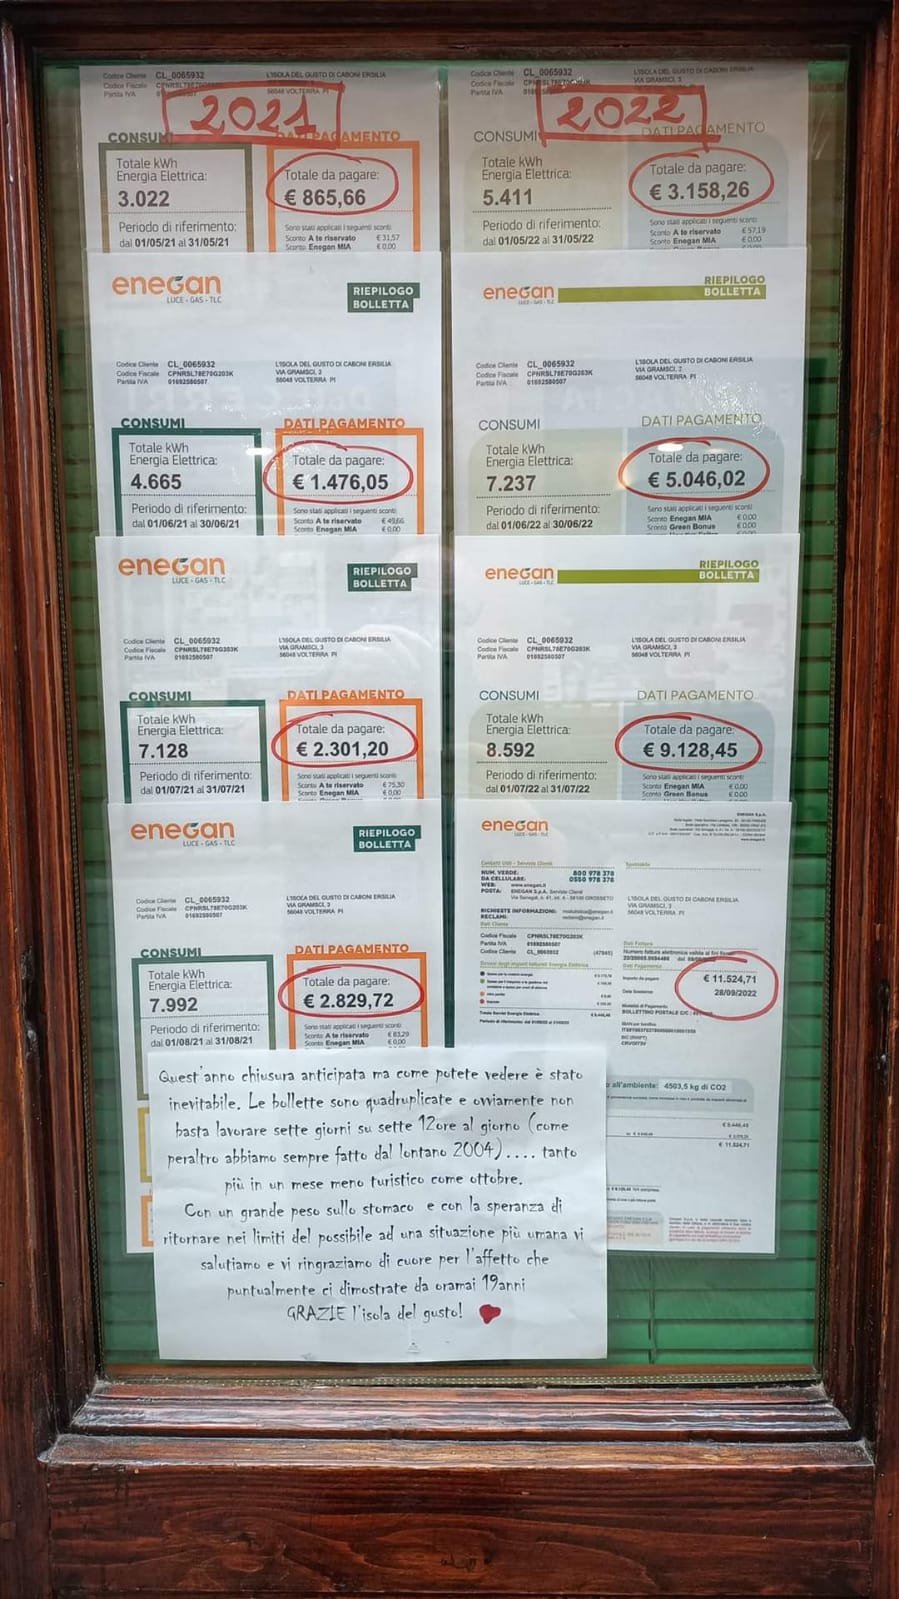 Codice Cliente CL_0065932
Codice Fiscale
Partita IVA
L'ISOLA DEL GUSTO DI CABONI ERSILIA
56048 VOLTERRA PI
2021
CONSUMI
DATI PAGAMENTO
Totale kWh
Energia Elettrica:
3.022
Periodo di riferimento:
dal 01/05/21 al 31/05/21
Totale da pagare:
€ 865,66
Sono stati applicati i seguenti sconti:
Sconto A te riservato € 31,57
Sconto Enegan MIA € 0,00
enegan
LUCE - GAS - TLC
RIEPILOGO
BOLLETTA
Codice Cliente CL_0065932
Codice Fiscale CPNRSL78E70G203K
Partita IVA 01692580507
L'ISOLA DEL GUSTO DI CABONI ERSILIA
VIA GRAMSCI, 3
56048 VOLTERRA PI
CONSUMI
DATI PAGAMENTO
Totale kWh
Energia Elettrica:
4.665
Periodo di riferimento:
dal 01/06/21 al 30/06/21
Totale da pagare:
€ 1.476,05
Sono stati applicati i seguenti sconti:
Sconto A te riservato € 49,66
Sconto Enegan MIA € 0,00
enegan
LUCE - GAS - TLC
RIEPILOGO
BOLLETTA
Codice Cliente CL_0065932
Codice Fiscale CPNRSL78E70G203K
Partita IVA 01692580507
L'ISOLA DEL GUSTO DI CABONI ERSILIA
VIA GRAMSCI, 3
56048 VOLTERRA PI
CONSUMI
DATI PAGAMENTO
Totale kWh
Energia Elettrica:
7.128
Periodo di riferimento:
dal 01/07/21 al 31/07/21
Totale da pagare:
€ 2.301,20
Sono stati applicati i seguenti sconti:
Sconto A te riservato € 75,30
Sconto Enegan MIA € 0,00
enegan
LUCE - GAS - TLC
RIEPILOGO
BOLLETTA
Codice Cliente CL_0065932
Codice Fiscale CPNRSL78E70G203K
Partita IVA 01692580507
L'ISOLA DEL GUSTO DI CABONI ERSILIA
VIA GRAMSCI, 3
56048 VOLTERRA PI
CONSUMI
DATI PAGAMENTO
Totale kWh
Energia Elettrica:
7.992
Periodo di riferimento:
dal 01/08/21 al 31/08/21
Totale da pagare:
€ 2.829,72
Sono stati applicati i seguenti sconti:
Sconto A te riservato € 83,29
Sconto Enegan MIA € 0,00
Codice Cliente CL_0065932
Codice Fiscale
Partita IVA
L'ISOLA DEL GUSTO DI CABONI ERSILIA
VIA GRAMSCI, 3
2022
CONSUMI
DATI PAGAMENTO
Totale kWh
Energia Elettrica:
5.411
Periodo di riferimento:
dal 01/05/22 al 31/05/22
Totale da pagare:
€ 3.158,26
Sono stati applicati i seguenti sconti:
Sconto A te riservato € 57,19
Sconto Enegan MIA € 0,00
enegan
LUCE - GAS - TLC
RIEPILOGO
BOLLETTA
Codice Cliente CL_0065932
Codice Fiscale CPNRSL78E70G203K
Partita IVA 01692580507
L'ISOLA DEL GUSTO DI CABONI ERSILIA
VIA GRAMSCI, 3
56048 VOLTERRA PI
CONSUMI
DATI PAGAMENTO
Totale kWh
Energia Elettrica:
7.237
Periodo di riferimento:
dal 01/06/22 al 30/06/22
Totale da pagare:
€ 5.046,02
Sono stati applicati i seguenti sconti:
Sconto Enegan MIA € 0,00
Sconto Green Bonus € 0,00
enegan
LUCE - GAS - TLC
RIEPILOGO
BOLLETTA
Codice Cliente CL_0065932
Codice Fiscale CPNRSL78E70G203K
Partita IVA 01692580507
L'ISOLA DEL GUSTO DI CABONI ERSILIA
VIA GRAMSCI, 3
56048 VOLTERRA PI
CONSUMI
DATI PAGAMENTO
Totale kWh
Energia Elettrica:
8.592
Periodo di riferimento:
dal 01/07/22 al 31/07/22
Totale da pagare:
€ 9.128,45
Sono stati applicati i seguenti sconti:
Sconto Enegan MIA € 0,00
Sconto Green Bonus € 0,00
enegan
LUCE - GAS - TLC
ENEGAN S.p.A.
Contatti Utili - Servizio Clienti
NUM. VERDE: 800 978 378
DA CELLULARE: 0550 978 378
WEB: www.enegan.it
POSTA: ENEGAN S.p.A. Servizio Clienti
RICHIESTE INFORMAZIONI:
RECLAMI: reclami@enegan.it
Dati Cliente
Codice Fiscale CPNRSL78E70G203K
Partita IVA 01692580507
Codice Cliente
Spettabile
L'ISOLA DEL GUSTO DI CABONI ERSILIA
VIA GRAMSCI, 3
56048 VOLTERRA PI
Dati Fattura
Dati Pagamento
Importo da pagare € 11.524,71
Data Scadenza 28/09/2022
Modalità di Pagamento
all'ambiente: 4503,5 kg di CO2
€ 11.524,71
Quest'anno chiusura anticipata ma come potete vedere è stato
inevitabile. Le bollette sono quadruplicate e ovviamente non
basta lavorare sette giorni su sette 12ore al giorno (come
peraltro abbiamo sempre fatto dal lontano 2004).... tanto
più in un mese meno turistico come ottobre.
Con un grande peso sullo stomaco e con la speranza di
ritornare nei limiti del possibile ad una situazione più umana vi
salutiamo e vi ringraziamo di cuore per l'affetto che
puntualmente ci dimostrate da oramai 19anni
GRAZIE l'isola del gusto!